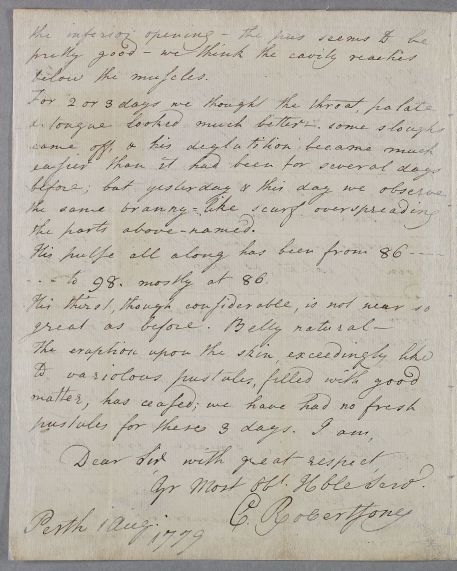 the inferior opening – the pus seems to be
pretty good – we think the cavity reaches
below the muſcles.
For 2 or 3 days we thought the throat, palate
& tongue looked much better – some sloughs
came off & his deglutition became much
easier than it had been for several days
before; but yesterday & this day we observe
the same branny-like scurf overspreading
the parts above-named.
His pulſe all along has been from 86 ----
--- to 98. mostly at 86.
His thirst, though conſiderable, is not near so
great as before. Belly natural –
the eruption upon the skin, exceedingly like
to variolous pustules, filled with good
matter, has ceaſed; we have had no freſh
pustules for these 3 days. I am,
Dear Sir with great respect
Yr Most Obt. Hble Servt.
C. Robertson
Perth 1 Aug: 1779